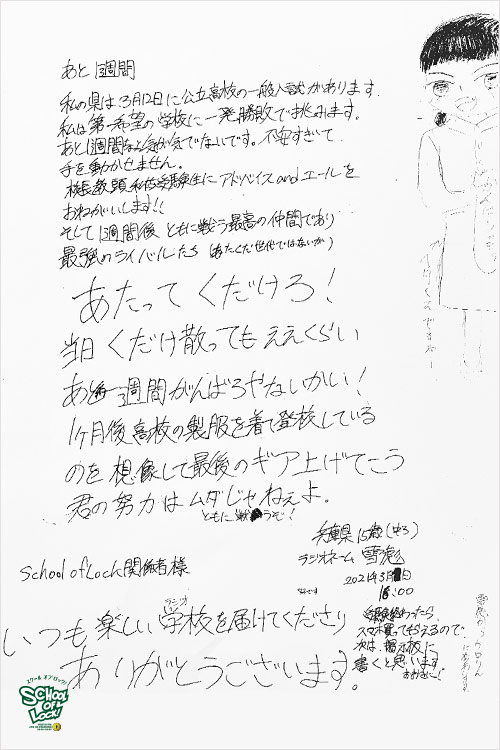 あと1週間
私の県は3月12日に公立高校の一般入試があります。
私は第一希望の学校に一発勝負で挑みます。
あと1週間なら気が気でないです。不安すぎて
手を動かせません。
校長教頭 私たち受験生にアドバイスandエールを
おねがいします!!
そして1週間後 ともに戦う最高の仲間であり
最強のライバルたち
あたって くだけろ!
当日 くだけ散っても ええくらい
あと一週間がんばろやないかい!
1ヶ月後高校の製服を着て登校している
のを 想像して最後のギア上げてこう
君の努力は ムダじゃねぇよ。
ともに戦うぞ!
兵庫県 15歳(中3)
ラジオネーム
2021年3月 日
16:00
School of Lock 関係者様
いつも楽しい学校を届けてくださり
ラジオ
ありがとうございます。
受験終わったら
スマホ買ってもらえるので
次は、掲示板に
書くと思います
スクール オブ ロック!
SCHOOL OF LOCK!